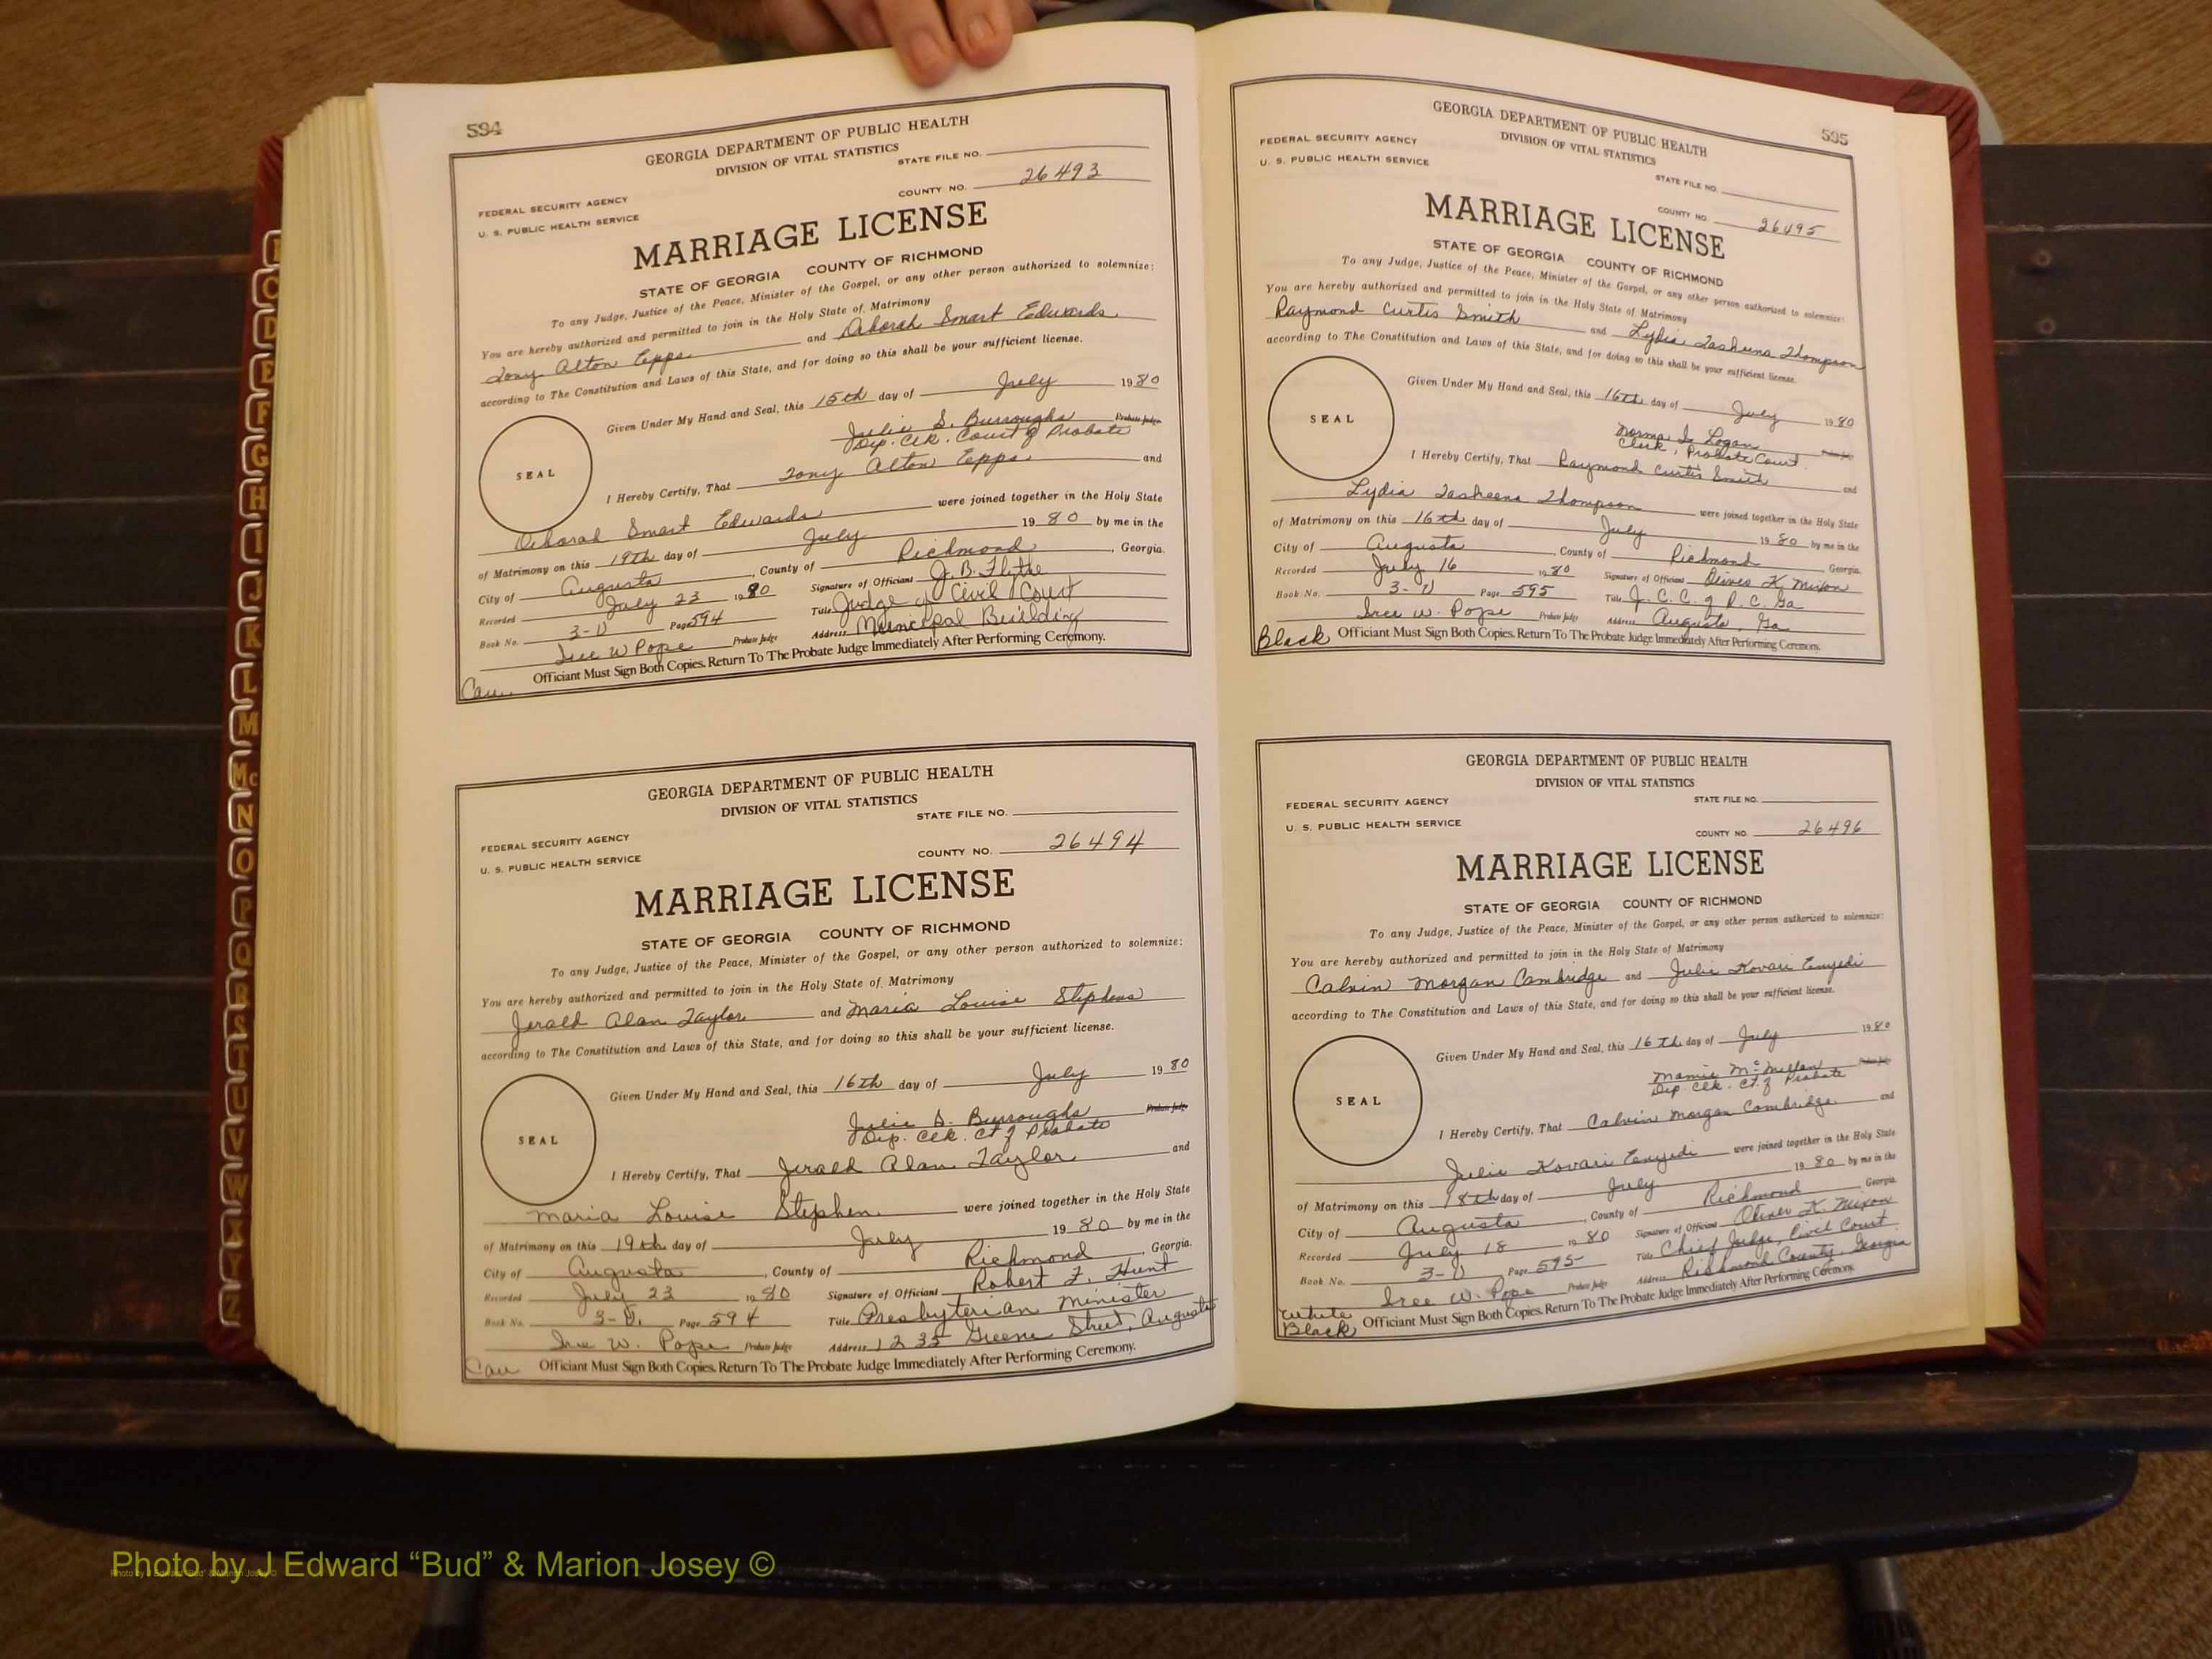 594
GEORGIA DEPARTMENT OF PUBLIC HEALTH
DIVISION OF VITAL STATISTICS
STATE FILE NO.
FEDERAL SECURITY AGENCY
COUNTY NO. 26493
U. S. PUBLIC HEALTH SERVICE
MARRIAGE LICENSE
STATE OF GEORGIA COUNTY OF RICHMOND
To any Judge, Justice of the Peace, Minister of the Gospel, or any other person authorized to solemnize:
You are hereby authorized and permitted to join in the Holy State of Matrimony
Tony Alton Epps and Deborah Smart Edwards
according to The Constitution and Laws of this State, and for doing so this shall be your sufficient license.
Given Under My Hand and Seal, this 15th day of July 1980
Julie S. Burroughs Probate Judge
Dip. Clk. Court of Probate
SEAL
I Hereby Certify, That Tony Alton Epps and
Deborah Smart Edwards were joined together in the Holy State
of Matrimony on this 19th day of July 1980 by me in the
City of Augusta, County of Richmond, Georgia.
Recorded July 23 1980 Signature of Officiant J. B. Flythe
Book No. 3-U Page 594 Title Judge of Civil Court
Iree W Pope Probate Judge Address Municipal Building
Cau. Officiant Must Sign Both Copies. Return To The Probate Judge Immediately After Performing Ceremony.
GEORGIA DEPARTMENT OF PUBLIC HEALTH
DIVISION OF VITAL STATISTICS
STATE FILE NO.
FEDERAL SECURITY AGENCY
COUNTY NO. 26494
U. S. PUBLIC HEALTH SERVICE
MARRIAGE LICENSE
STATE OF GEORGIA COUNTY OF RICHMOND
To any Judge, Justice of the Peace, Minister of the Gospel, or any other person authorized to solemnize:
You are hereby authorized and permitted to join in the Holy State of Matrimony
Jerald Alan Taylor and Maria Louise Stephens
according to The Constitution and Laws of this State, and for doing so this shall be your sufficient license.
Given Under My Hand and Seal, this 16th day of July 1980
Julie S. Burroughs Probate Judge
Dip. Clk. Ct of Probate
SEAL
I Hereby Certify, That Jerald Alan Taylor and
Maria Louise Stephen were joined together in the Holy State
of Matrimony on this 19th day of July 1980 by me in the
City of Augusta, County of Richmond, Georgia.
Recorded July 23 1980 Signature of Officiant Robert F. Hunt
Book No. 3-U. Page 594 Title Presbyterian Minister
Iree W. Pope Probate Judge Address 1235 Greene Street, Augusta
Cau Officiant Must Sign Both Copies. Return To The Probate Judge Immediately After Performing Ceremony.
595
GEORGIA DEPARTMENT OF PUBLIC HEALTH
DIVISION OF VITAL STATISTICS
FEDERAL SECURITY AGENCY
U. S. PUBLIC HEALTH SERVICE
STATE FILE NO.
COUNTY NO. 26495
MARRIAGE LICENSE
STATE OF GEORGIA COUNTY OF RICHMOND
To any Judge, Justice of the Peace, Minister of the Gospel, or any other person authorized to solemnize:
You are hereby authorized and permitted to join in the Holy State of Matrimony
Raymond Curtis Smith and Lydia Tasheena Thompson
according to The Constitution and Laws of this State, and for doing so this shall be your sufficient license.
Given Under My Hand and Seal, this 16th day of July 1980
Norma L. Logan Probate Judge
Clerk, Probate Court.
SEAL
I Hereby Certify, That Raymond Curtis Smith and
Lydia Tasheena Thompson were joined together in the Holy State
of Matrimony on this 16th day of July 1980 by me in the
City of Augusta, County of Richmond Georgia.
Recorded July 16 1980 Signature of Officiant Oliver K. Mixon
Book No. 3-U Page 595 Title J. C. C. of R. C. Ga
Iree W. Pope Probate Judge Address Augusta, Ga
Black Officiant Must Sign Both Copies. Return To The Probate Judge Immediately After Performing Ceremony.
GEORGIA DEPARTMENT OF PUBLIC HEALTH
DIVISION OF VITAL STATISTICS
FEDERAL SECURITY AGENCY
STATE FILE NO.
U. S. PUBLIC HEALTH SERVICE
COUNTY NO. 26496
MARRIAGE LICENSE
STATE OF GEORGIA COUNTY OF RICHMOND
To any Judge, Justice of the Peace, Minister of the Gospel, or any other person authorized to solemnize:
You are hereby authorized and permitted to join in the Holy State of Matrimony
Calvin Morgan Cambridge and Julie Kovari Enyedi
according to The Constitution and Laws of this State, and for doing so this shall be your sufficient license.
Given Under My Hand and Seal, this 16th day of July 1980
Mamie McMillan Probate Judge
Dep. Clk. Ct. of Probate
SEAL
I Hereby Certify, That Calvin Morgan Cambridge and
Julie Kovari Enyedi were joined together in the Holy State
of Matrimony on this 18th day of July 1980 by me in the
City of Augusta, County of Richmond Georgia.
Recorded July 18 1980 Signature of Officiant Oliver K. Mixon
Book No. 3-U Page 595 Title Chief Judge, Civil Court
Iree W. Pope Probate Judge Address Richmond County, Georgia
White
Black Officiant Must Sign Both Copies. Return To The Probate Judge Immediately After Performing Ceremony.
B C D E F G H I J K L M Mc N O P Q R S T U V W X Y Z
Photo by J Edward “Bud” & Marion Josey ©
Photo by J Edward “Bud” & Marion Josey ©